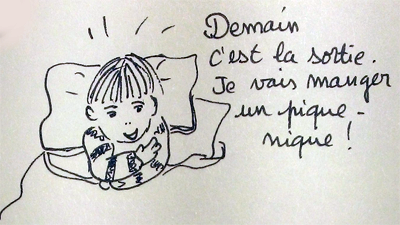 Demain
c'est la sortie.
Je vais manger
un pique-
nique !